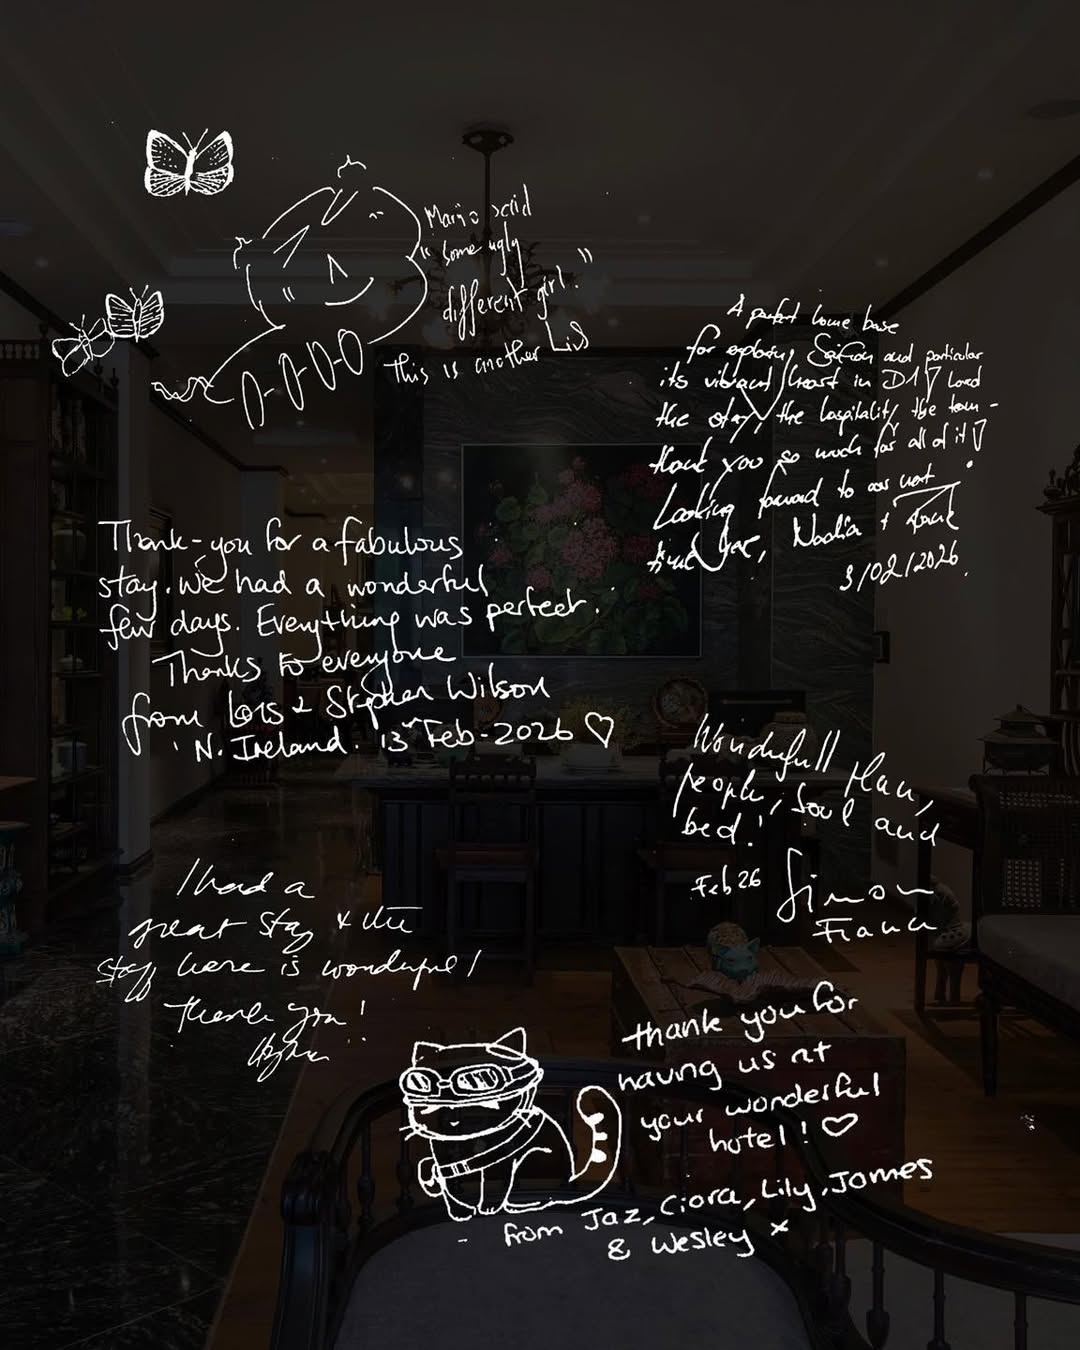 Mario said
"some ugly
different girl."
this is another
A perfect home base
for exploring Saigon and particular
its vibrant heart in D1! Loved
the stay, the hospitality, the team -
thank you so much for all of it!
Looking forward to our next
Year, Nadia +
3/02/2026.
Thank-you for a fabulous
stay. We had a wonderful
few days. Everything was perfect.
Thanks to everyone
from Lois & Stephen Wilson
N. Ireland. 13th Feb-2026 ♡
Wonderfull
people, soul and
bed!
Feb 26 Simon
I had a
great stay & the
staff here is wonderful!
Thank you!
thank you for
having us at
your wonderful
hotel! ♡
from Jaz, Ciara, Lily, James
& Wesley x